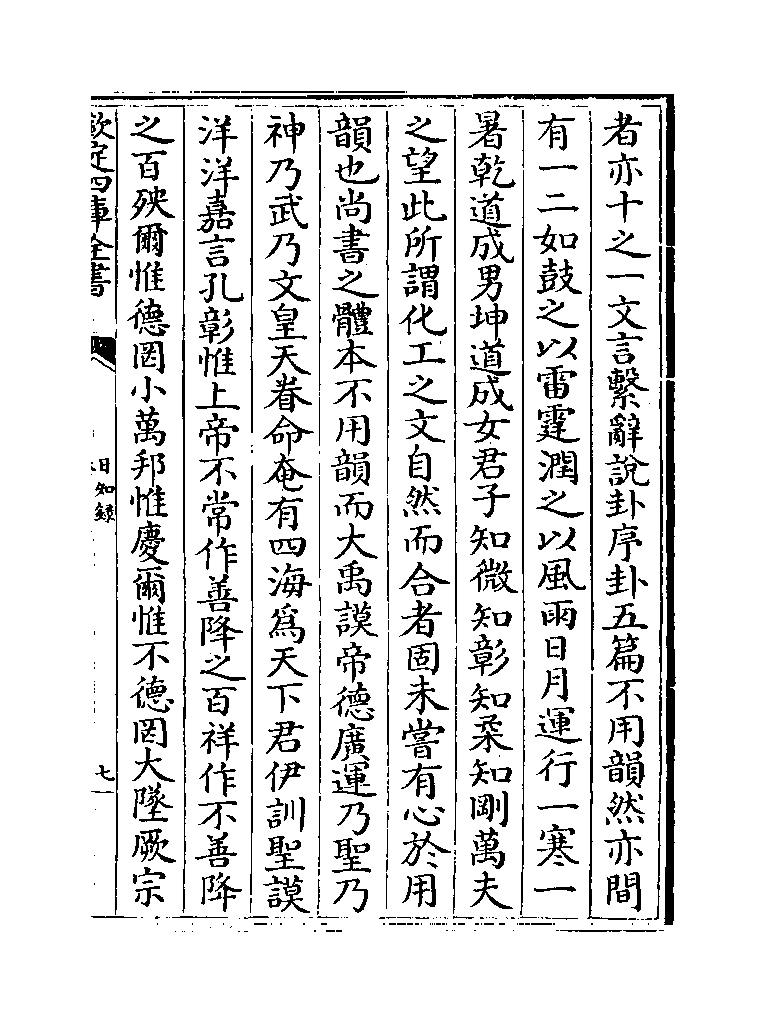 者亦十之一文言繫辭說卦序卦五篇不用韻然亦間
有一二如鼓之以雷霆潤之以風雨日月運行一寒一
暑乾道成男坤道成女君子知微知彰知柔知剛萬夫
之望此所謂化工之文自然而合者固未嘗有心於用
韻也尚書之體本不用韻而大禹謨帝德廣運乃聖乃
神乃武乃文皇天眷命奄有四海為天下君伊訓聖謨
洋洋嘉言孔彰惟上帝不常作善降之百祥作不善降
之百殃爾惟德罔小萬邦惟慶爾惟不德罔大墜厥宗
欽定四庫全書
日知錄
七